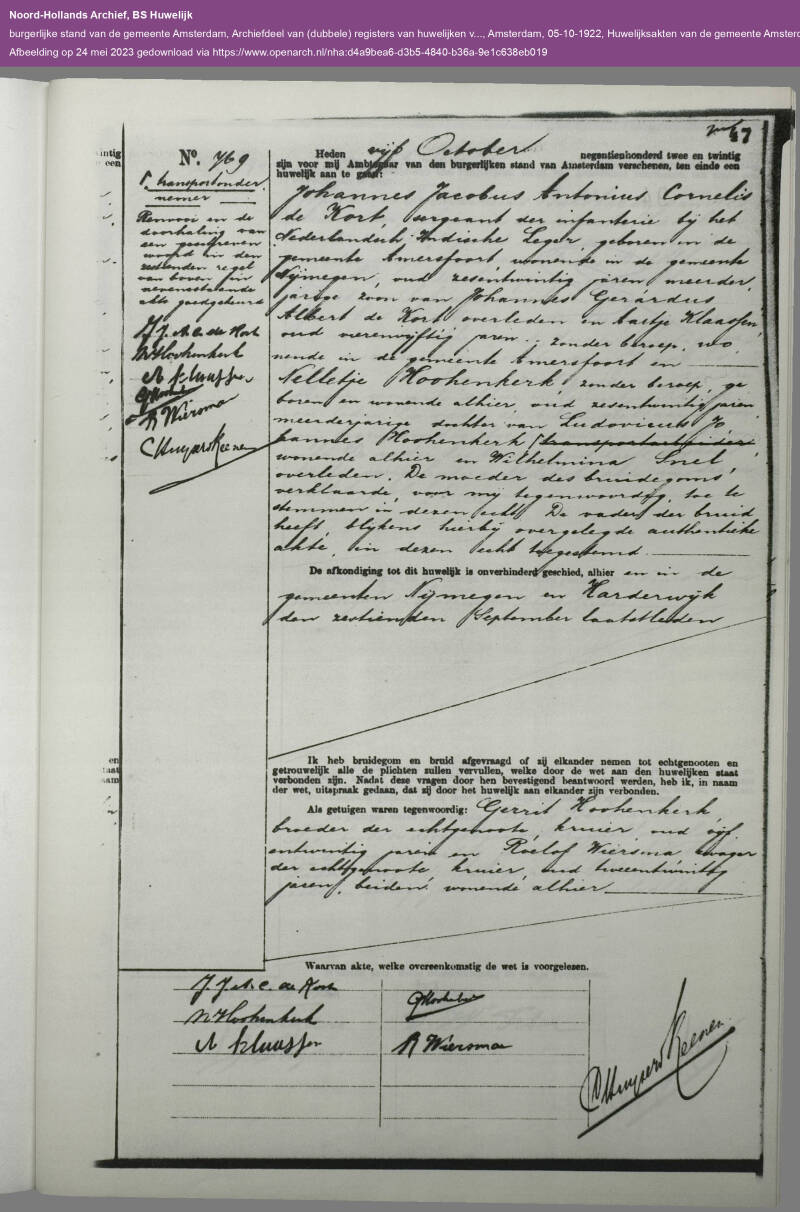 Noord-Hollands Archief, BS Huwelijk
burgerlijke stand van de gemeente Amsterdam, Archiefdeel van (dubbele) registers van huwelijken v..., Amsterdam, 05-10-1922, Huwelijksakten van de gemeente Amsterd
Afbeelding op 24 mei 2023 gedownload via https://www.openarch.nl/nha:d4a9bea6-d3b5-4840-b36a-9e1c638eb019
47
intig
een
No. 769
transportonder
nemer
Renvooi en de
doorhaling van
een geschreven
woord in den
zestienden regel
van boven in
nevenstaande
akte goedgekeurd
J. J. A. C. de Kort
N Hoohenkerk
A Klaassen
G Hoohenkerk
R Wiersma
C Kuypers Keenen
Heden vijf October negentienhonderd twee en twintig
zijn voor mij Ambtenaar van den burgerlijken stand van Amsterdam verschenen, ten einde een
huwelijk aan te gaan:
Johannes Jacobus Antonius Cornelis
de Kort, sergeant der infanterie bij het
Nederlandsch Indische Leger, geboren in de
gemeente Amersfoort, wonende in de gemeente
Nijmegen, oud zesentwintig jaren, meerder
jarige zoon van Johannes Gerardus
Albert de Kort overleden en Aartje Klaassen,
oud vierenvijftig jaren, zonder beroep, wo
nende in de gemeente Amersfoort en
Nelletje Hoohenkerk, zonder beroep, ge
boren en wonende alhier, oud zesentwintig jaren
meerderjarige dochter van Ludovicus Jo
hannes Hoohenkerk, transportarbeider
wonende alhier en Wilhelmina Snel,
overleden. De moeder des bruidegoms
verklaarde, voor mij tegenwoordig, toe te
stemmen in dezen echt. De vader der bruid
heeft, blijkens hierbij overgelegde authentieke
akte, in dezen echt toegestemd
De afkondiging tot dit huwelijk is onverhinderd geschied, alhier en in de
gemeenten Nijmegen en Harderwijk
den zestienden September laatstleden
en
taat
aam
Ik heb bruidegom en bruid afgevraagd of zij elkander nemen tot echtgenooten en
getrouwelijk alle de plichten zullen vervullen, welke door de wet aan den huwelijken staat
verbonden zijn. Nadat deze vragen door hen bevestigend beantwoord werden, heb ik, in naam
der wet, uitspraak gedaan, dat zij door het huwelijk aan elkander zijn verbonden.
Als getuigen waren tegenwoordig: Gerrit Hoohenkerk,
broeder der echtgenoote, kruier, oud vijf
entwintig jaren en Roelof Wiersma, zwager
der echtgenoote, kruier, oud tweeentwintig
jaren, beiden wonende alhier
Waarvan akte, welke overeenkomstig de wet is voorgelezen.
J. J. A. C. de Kort
G Hoohenkerk
N Hoohenkerk
A Klaassen
R Wiersma
C Kuypers Keenen